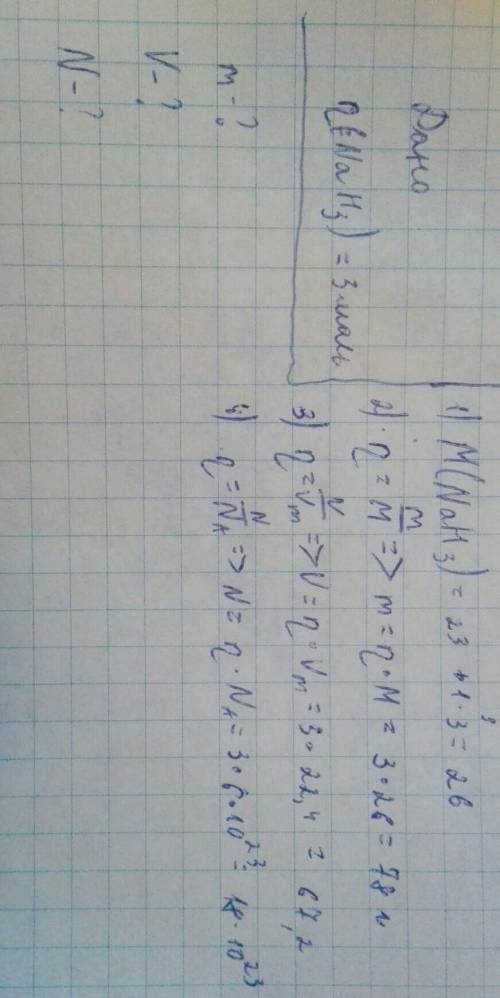 Дано
η(NaH₃) = 3 моль
m - ?
V - ?
N - ?
1) M(NaH₃) = 23 + 1 · 3 = 26
2) η = m/M => m = η · M = 3 · 26 = 78 г
3) η = V/Vm => V = η · Vm = 3 · 22,4 = 67,2
4) η = N/N_A => N = η · N_A = 3 · 6 · 10²³ = 18 · 10²³